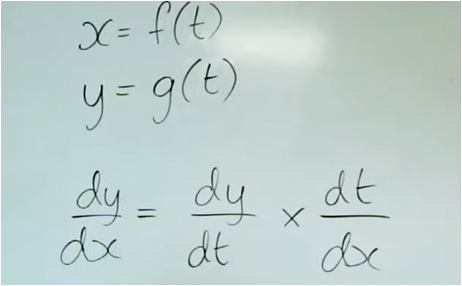 x = f(t)
y = g(t)
dy/dx = dy/dt × dt/dx